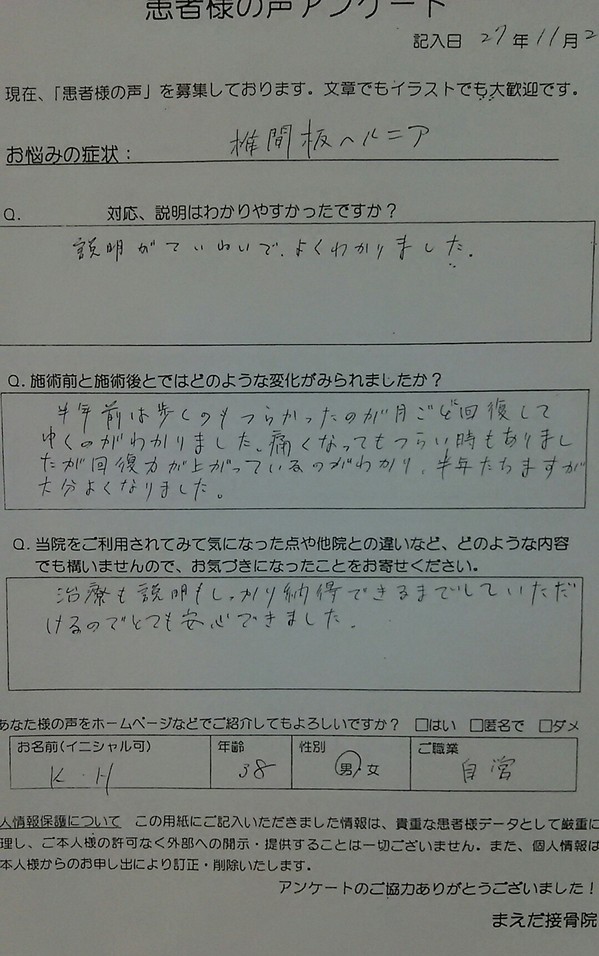 患者様の声アンケート
記入日 27年11月2
現在、「患者様の声」を募集しております。文章でもイラストでも大歓迎です。
お悩みの症状： 椎間板ヘルニア
Q. 対応、説明はわかりやすかったですか？
説明がていねいで、よくわかりました。
Q. 施術前と施術後とではどのような変化がみられましたか？
半年前は歩くのもつらかったのが月ごと回復して
ゆくのがわかりました。痛くなってもつらい時もありまし
たが回復力が上がっているのがわかり、半年たちますが
大分よくなりました。
Q. 当院をご利用されてみて気になった点や他院との違いなど、どのような内容
でも構いませんので、お気づきになったことをお寄せください。
治療も説明もしっかり納得できるまでしていただ
けるのでとても安心できました。
あなた様の声をホームページなどでご紹介してもよろしいですか？ □はい □匿名で □ダメ
お名前(イニシャル可) 年齢 性別 ご職業
K・H 38 男・女 自営
人情報保護について この用紙にご記入いただきました情報は、貴重な患者様データとして厳重に
理し、ご本人様の許可なく外部への開示・提供することは一切ございません。また、個人情報は
本人様からのお申し出により訂正・削除いたします。
アンケートのご協力ありがとうございました！
まえだ接骨院